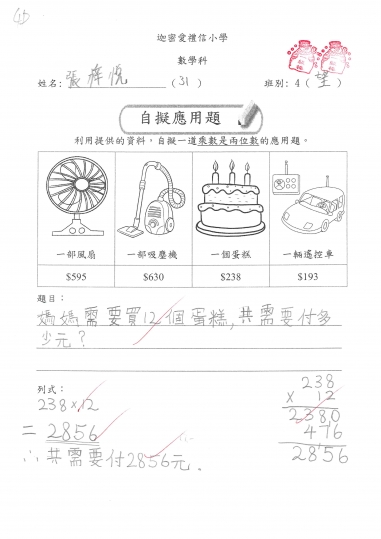 迦密愛禮信小學
數學科
姓名: 張 悅 (31) 班別: 4 (望)
自擬應用題
利用提供的資料，自擬一道乘數是兩位數的應用題。
一部風扇 一部吸塵機 一個蛋糕 一輛遙控車
$595 $630 $238 $193
題目：
媽媽需要買12個蛋糕,共需要付多
少元?
列式：
238×12
= 2856
∴共需要付2856元。
238
× 12
2380
476
2856